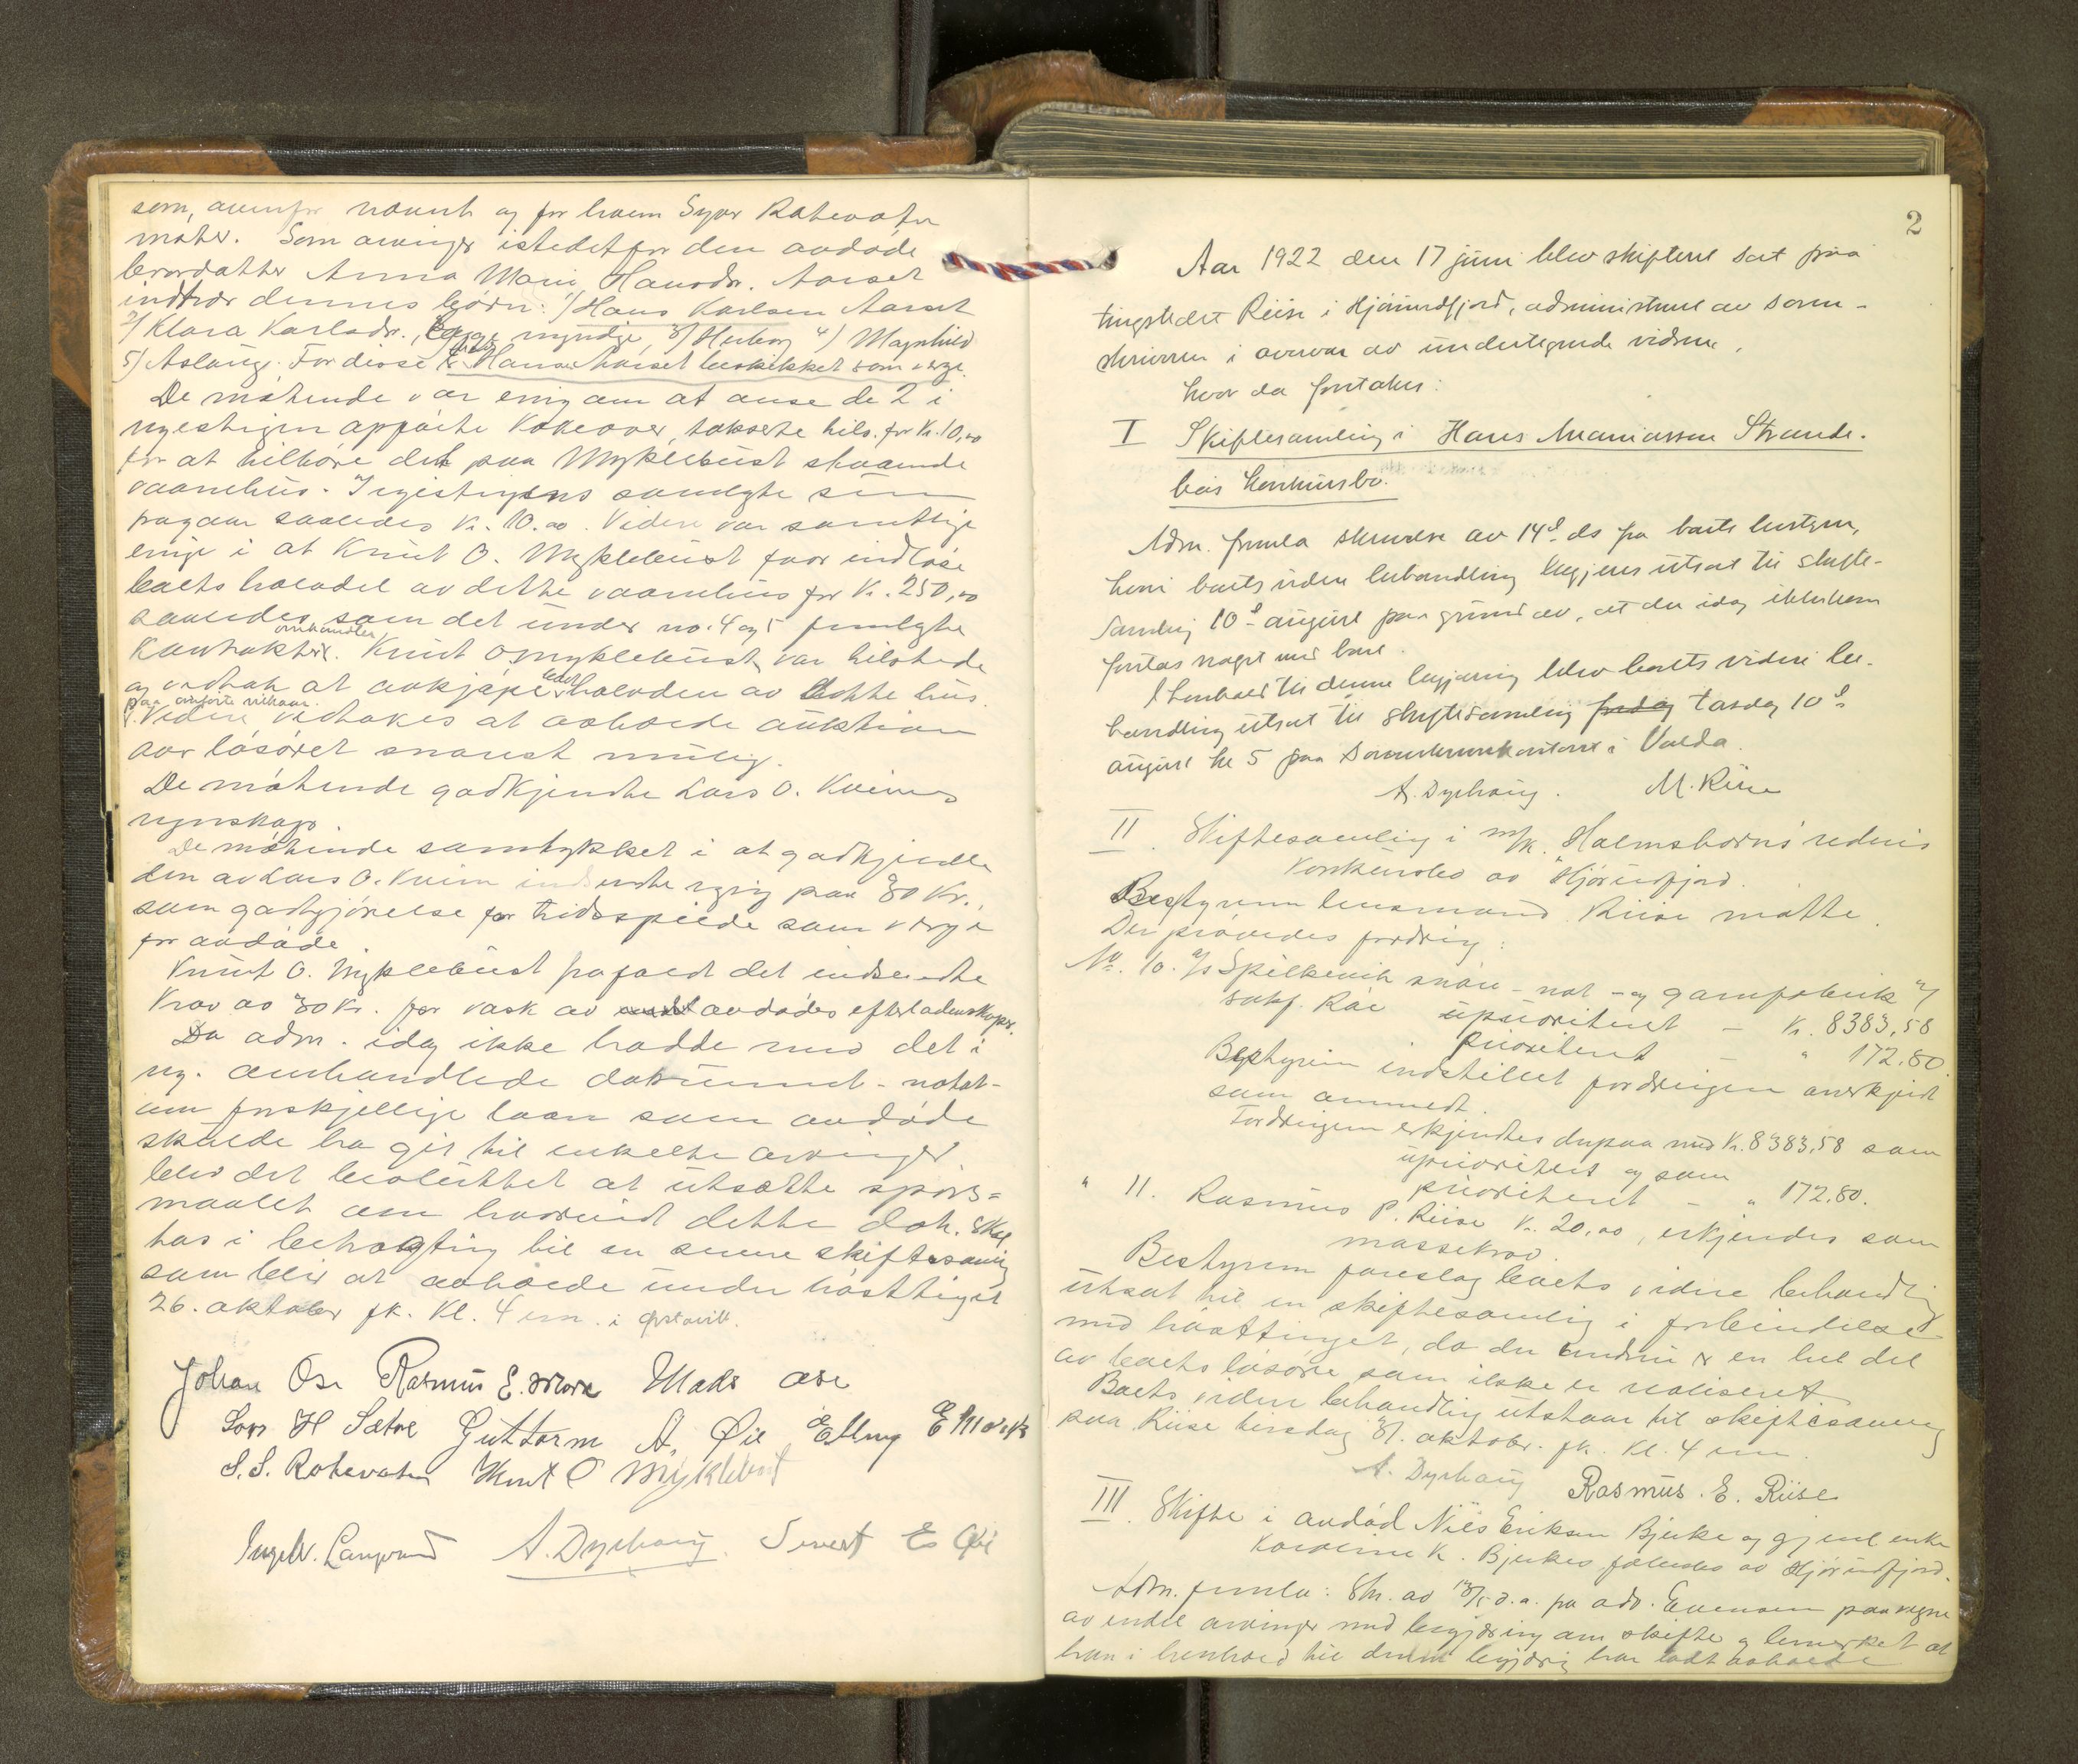 som, ovenfor nævnt og for hvem Syver Rotevatn
møter. Som arvinger istedetfor den avdøde
brordatter Anna Marie Hansdr. Aarset
indtrær dennes børn: 1/ Hans Karlsen Aarset
2/ Klara Karlsdr., begge myndige, 3/ Herborg 4/ Magnhild
5/ Aslaug. For disse er Hans Aarset beskikket som verge.
De møtende var enig om at anse de 2 i
registringen opførte kokeover, takserte tils. for Kr. 10,00
for at tilhøre det paa Myklebust staaende
vaanehus. Registringens samlagte sum
fragaar saaledes Kr. 10.00. Videre var samtlige
enige i at Knut O. Myklebust faar indløse
boets halvdel av dette vaanehus for Kr. 250,00
saaledes som det under no. 4 og 5 fremlagte
omhandler
kontrakter. Knut O Myklebust var tilstede
og vedtok at avkjøpe boet halvden av dette hus
paa anførte vilkaar.
Videre vedtokes at avholde auktion
over løsøret snarest mulig.
De møtende godkjendte Lars O. Kviens
regnskap.
De møtende samtykket i at godkjende
den av Lars O. Kvien indsendte regning paa 80 Kr.,
som godtgjørelse for tidsspilde som verge
for avdøde.
Knut O. Myklebust frafaldt det indsendte
krav av 30 Kr. for vask av avdødes efterladenskaper.
Da adm. idag ikke hadde med det i
reg. omhandlede dokument - notat -
om forskjellige laan som avdøde
skulde ha git til enkelte arvinger
blev det besluttet at utsætte spørs=
maalet om hvorvidt dette dok. skal
tas i betragtning til en senere skiftesamling
som blir at avholde under høsttinget
26. oktober fk. Kl. 4 em. i Ørstavik.
Johan Ose Rasmus E. Mork Mads Ose
Lars H Sætre Guttorm A. Øie Elling E Mork
S. S. Rotevatn Knut O Myklebust
Ingebr. Langvand A. Dyrhaug. Sivert E Øie
2
Aar 1922 den 17 juni blev skifteret sat paa
tingstedet Riise i Hjørundfjord, administreret av soren-
skriveren i overvær av undertegnede vidner,
hvor da foretokes:
I Skiftesamling i Hans Ananiassen Strande-
bøs konkursbo.
Adm. fremla skrivelse av 14d. ds fra boets bestyrer,
hvori boets videre behandling begjæres utsat til skifte-
samling 10d august paa grund av, at der idag ikke kan
foretas noget med boet.
I henhold til denne begjæring blev boets videre be-
handling utsat til skiftesamling fredag torsdag 10d
august kl 5 paa Sorenskriverkontoret i Volda.
A. Dyrhaug. M. Riise
II. Skiftesamling i m/k. Holmshorns rederis
konkursbo av Hjørundfjord.
Bestyreren lensmand Riise møtte.
Der prøvedes fordring:
No. 10. A/s Spilkevik snøre - not - og garnfabrik v/
sakf. Råe uprioritert - Kr. 8383,58
prioritert - " 172.80.
Bestyreren indstillet fordringen anerkjendt
som anmeldt.
Fordringen erkjendtes derpaa med Kr. 8383,58 som
uprioritert og som
prioritert - " 172.80.
" 11. Rasmus P. Riise Kr. 20,00, erkjendes som
massekrav.
Bestyreren foreslog boets videre behandling
utsat til en skiftesamling i forbindelse
med høsttinget, da der endnu er en hel del
av boets løsøre som ikke er realisert
Boets videre behandling utstaar til skiftesamling
paa Riise tirsdag 31. oktober fk. Kl. 4 em.
A. Dyrhaug Rasmus. E. Riise
III. Skifte i avdød Nils Eriksen Bjerke og gjenl. enke
Karoline K. Bjerkes fællesbo av Hjørundfjord.
Adm. fremla: Skr. av 13/5 d.a. fra adv. Evensen paa vegne
av endel arvinger med begjæring om skifte og bemerket at
han i henhold til denne begjæring har latt avholde